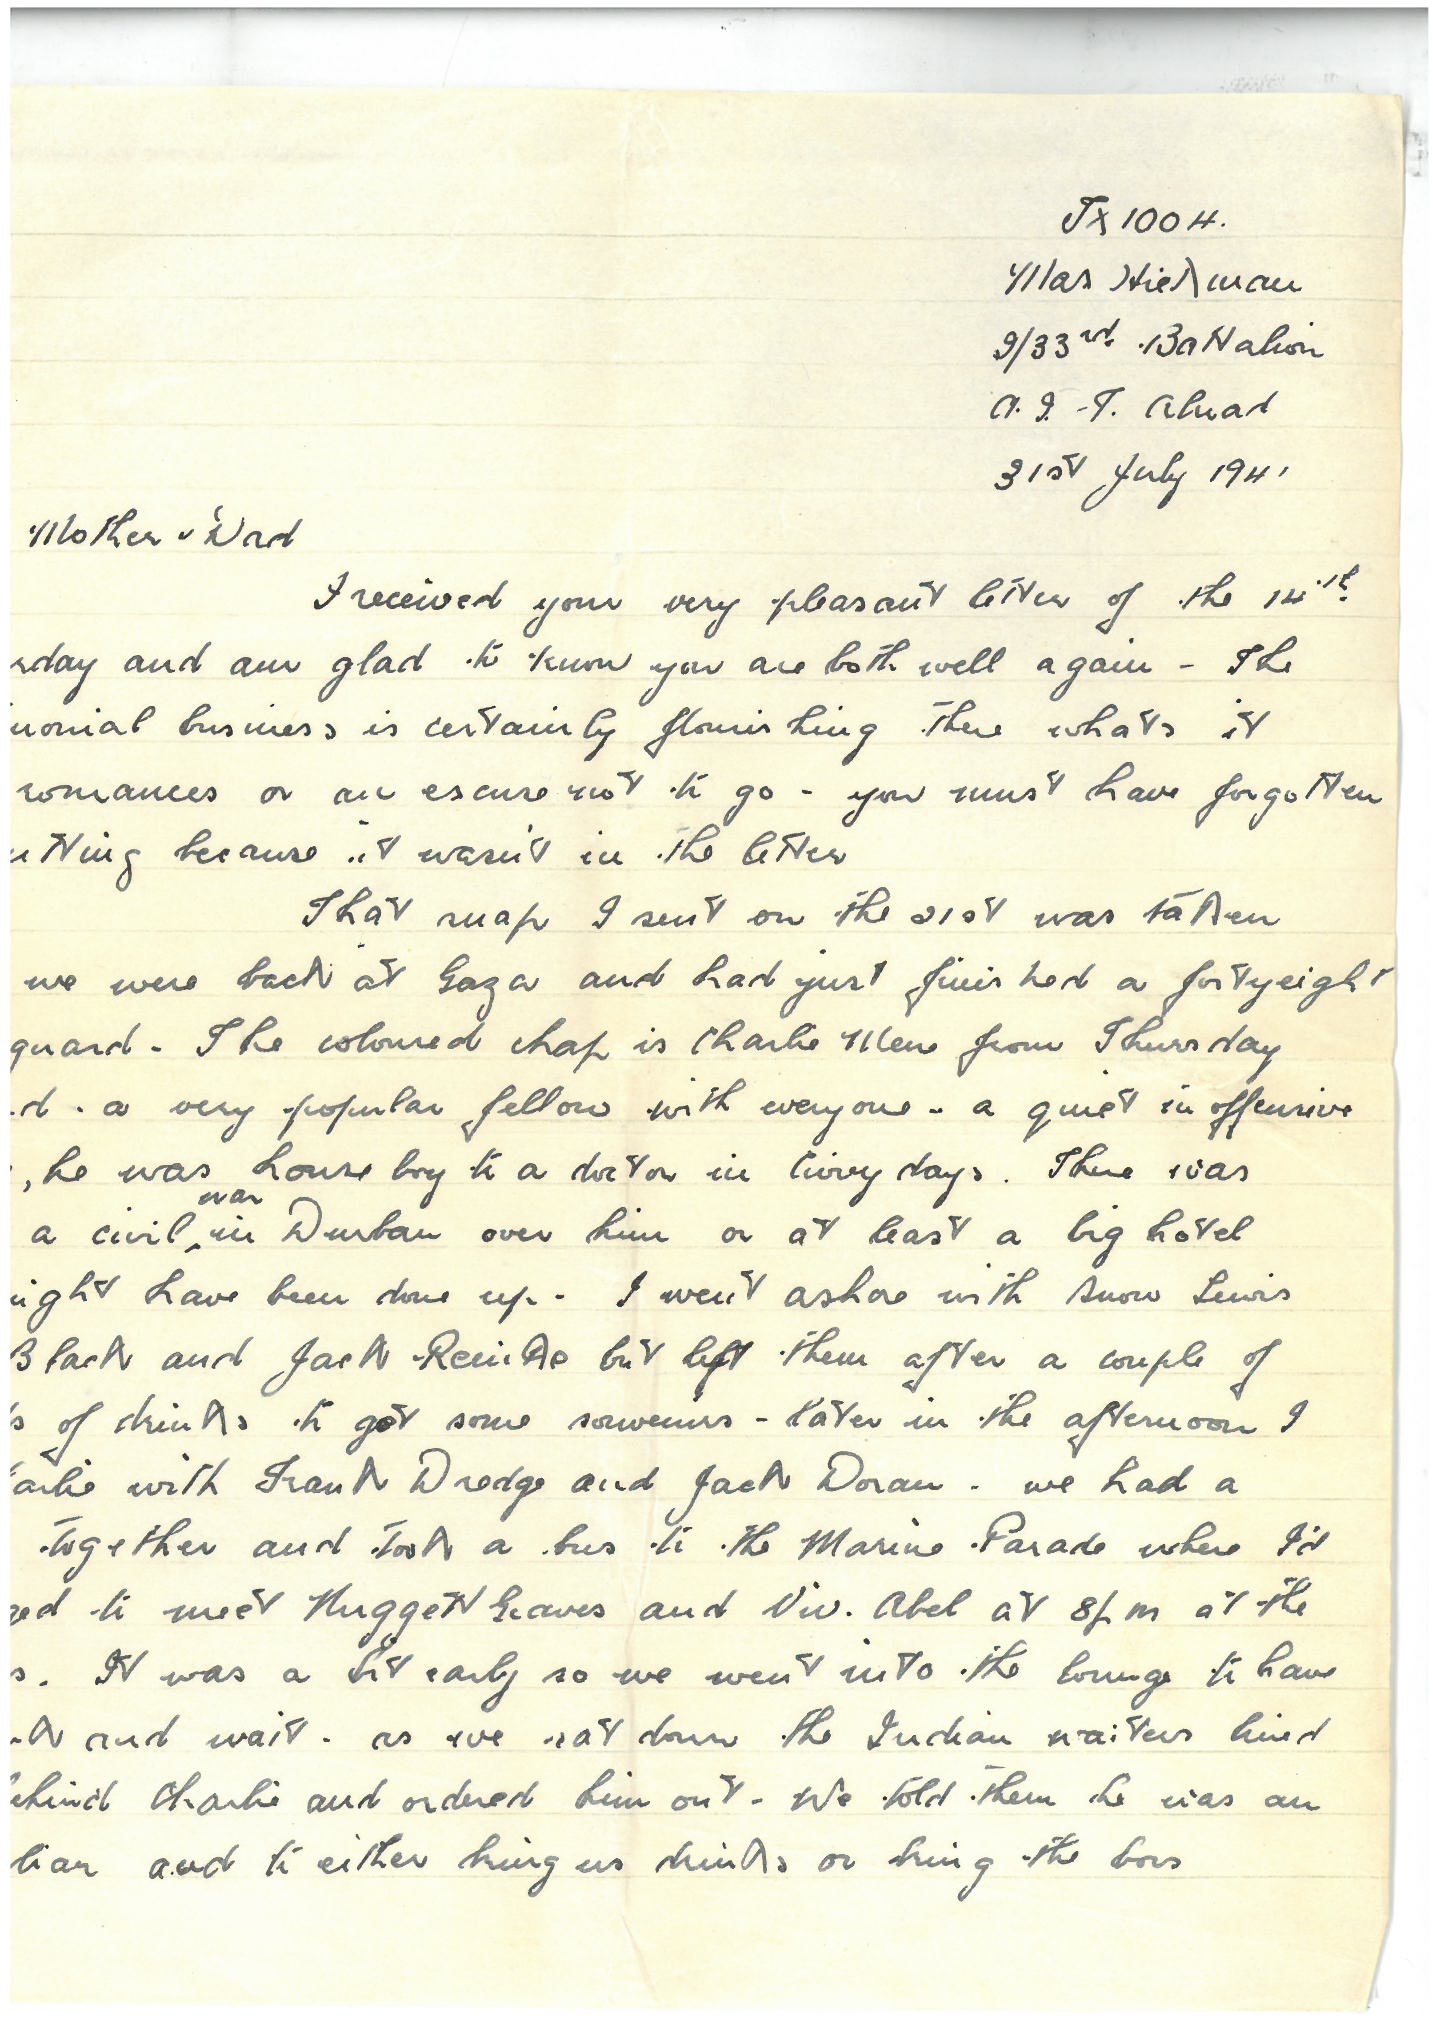 TX 1004.
Max Hickman
2/33rd Battalion
A.I.F. Abroad
31st July 1941
Mother & Dad
I received your very pleasant letter of the 14th.
rday and am glad to know you are both well again - The
monial business is certainly flourishing there whats it
romances or an excuse not to go - you must have forgotten
utting because it wasn't in the letter
That snap I sent on the 21st was taken
we were back at Gaza and had just finished a fortyeight
guard - The coloured chap is Charlie Mene from Thursday
d - a very popular fellow with everyone - a quiet inoffensive
, he was house boy to a doctor in civvy days. There was
a civil war in Durban over him or at least a big hotel
ight have been done up - I went ashore with Snow Lewis
Black and Jack but left them after a couple of
s of drinks to get some souvenirs - later in the afternoon I
arlie with Frank Dredge and Jack Doran - we had a
together and took a bus to the Marine Parade where I'd
ged to meet Nuggett Graves and Viv. Abel at 8pm at the
s. It was a bit early so we went into the lounge to have
nk and wait - as we sat down the Indian waiters lined
ehind Charlie and ordered him out - We told them he was an
lian and to either bring us drinks or bring the boss